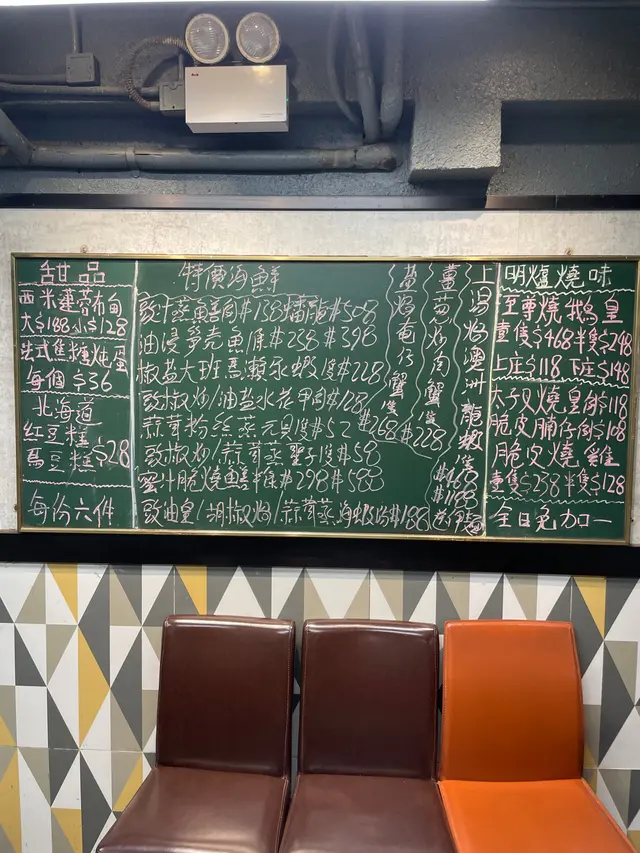 甜品
西米蓮蓉布甸
大$188小$128
法式焦糖炖蛋
每個$36
北海道
紅豆糕
馬豆糕$28
每份六件
特價海鮮
豉汁蒸魚
油浸筍壳魚
椒盐大班瀨尿蝦
豉椒炒/油盐水花甲
蒜茸粉丝蒸元貝隻$52
豉椒炒/蒜茸蒸聖子隻$58
蜜汁脆燒鱔
豉油皇/胡椒焗/蒜茸蒸海蝦
薑葱焗奄仔蟹隻
$268
薑葱炒肉蟹隻
$228
上湯焗澳洲龍蝦隻
明爐燒味
至尊燒鵝皇
壹隻$468半隻$248
上庄$118下庄$148
大子叉燒皇例$118
脆皮腩仔例$108
脆皮燒雞
壹隻$238半隻$128
全日免加一